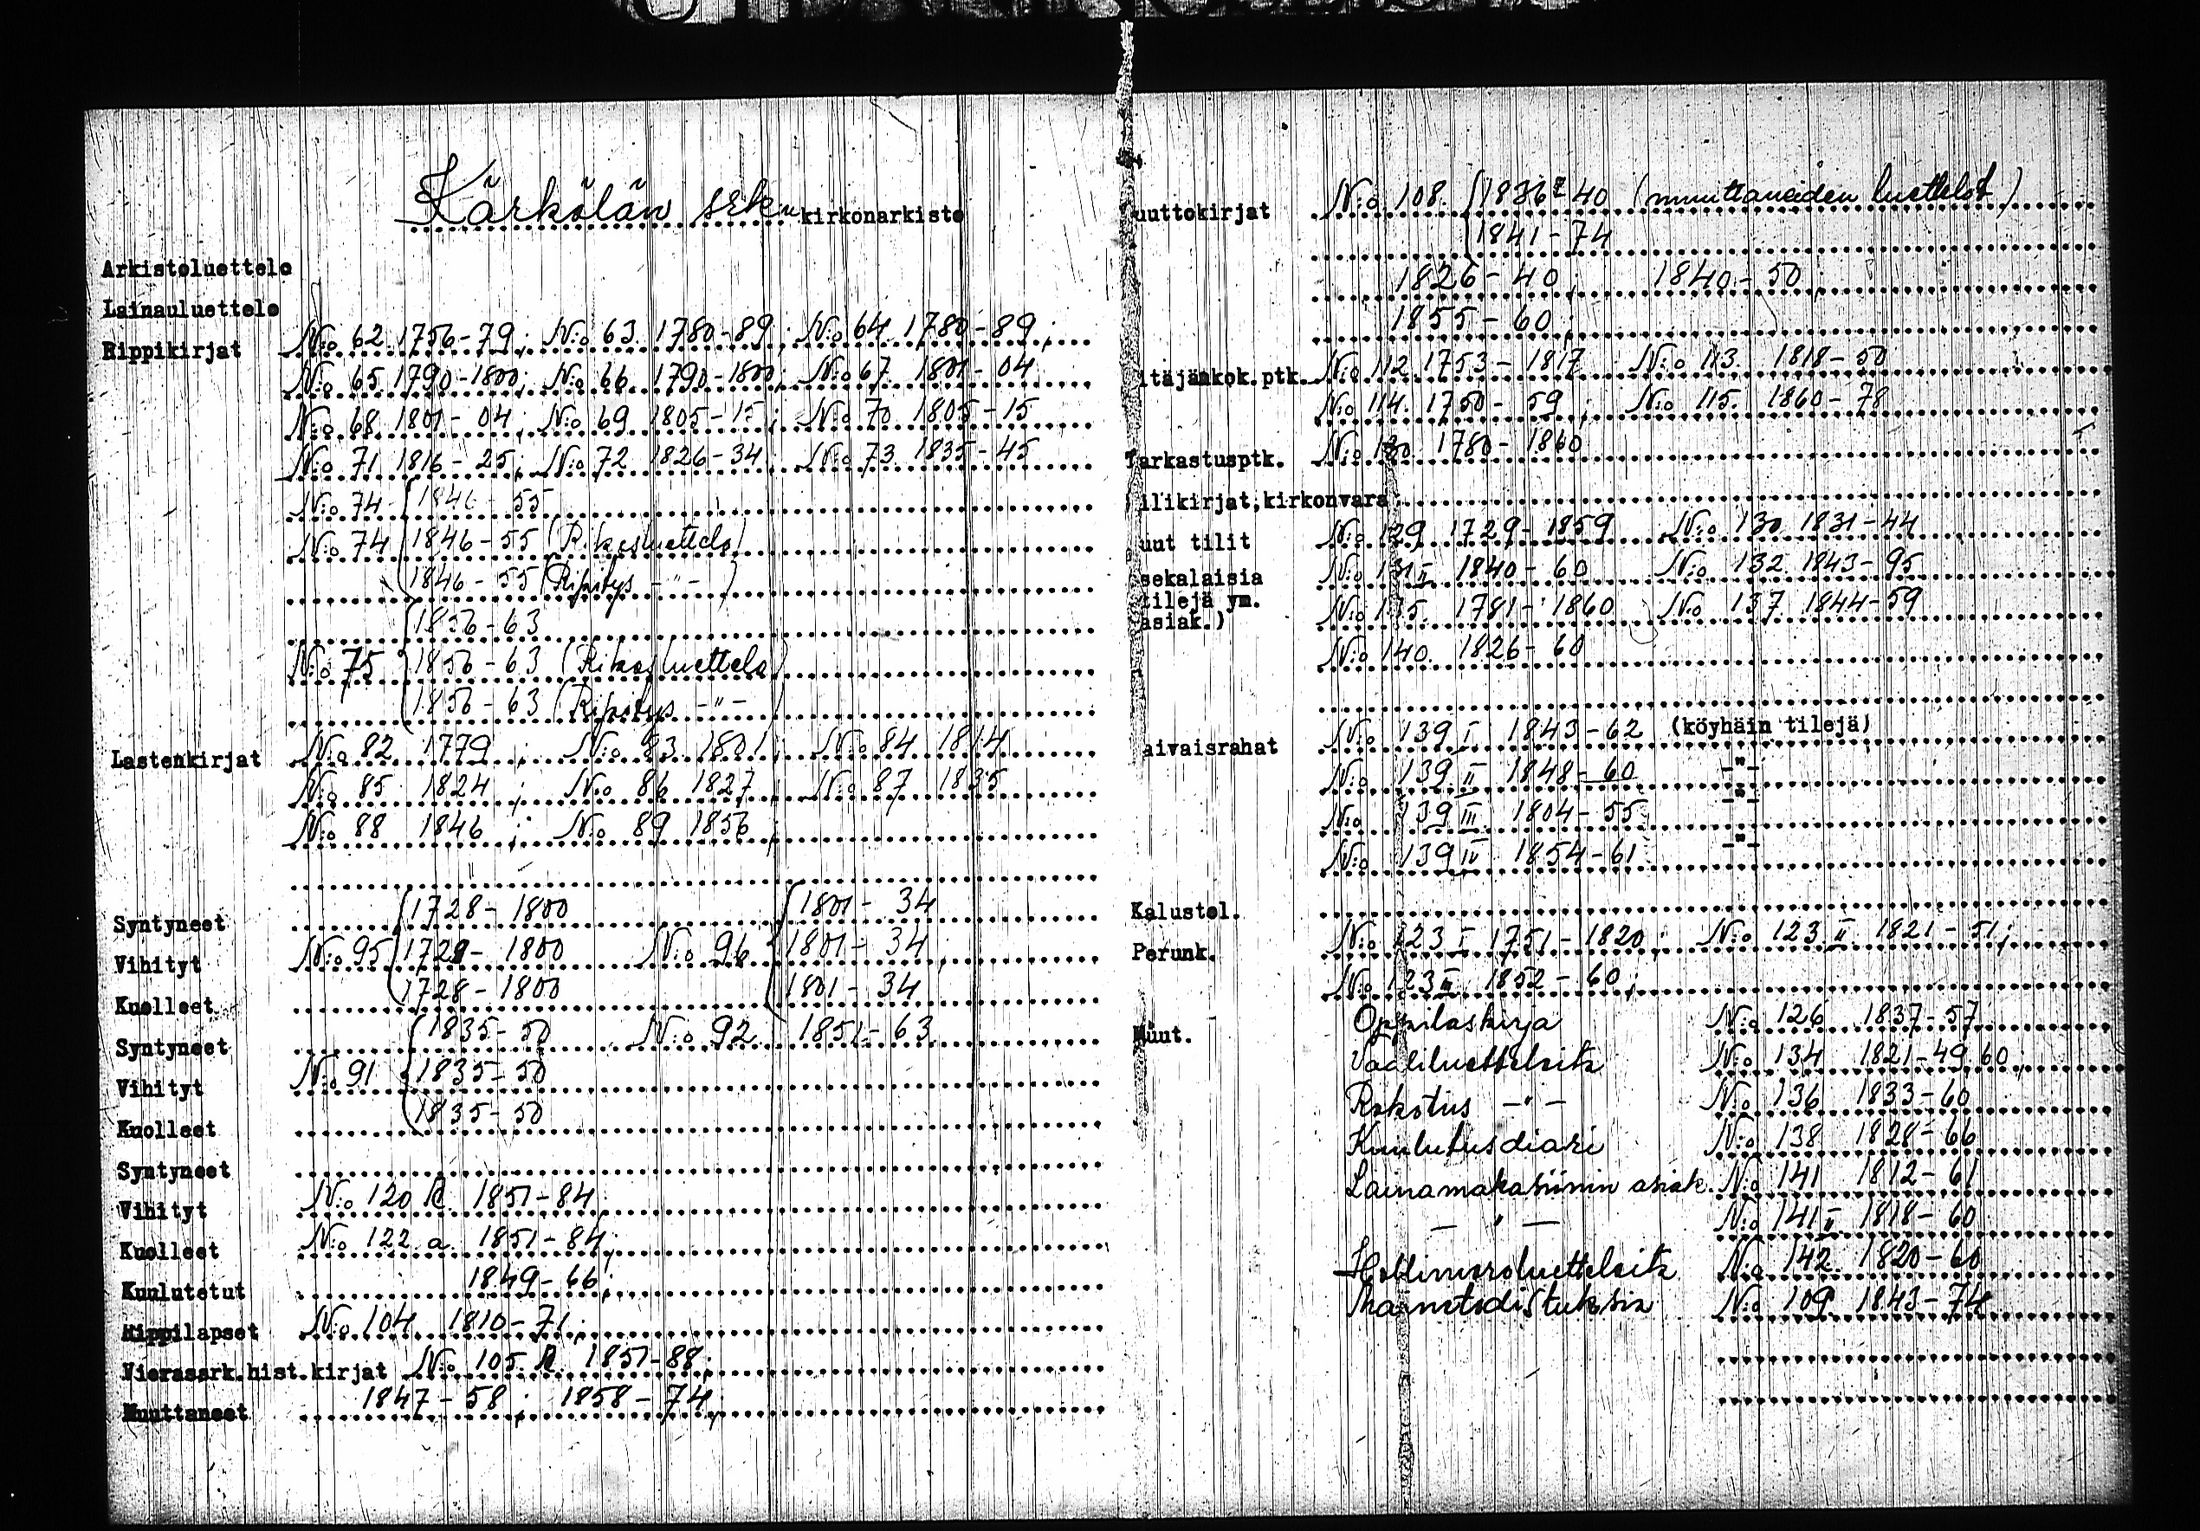 Kärkölän srk:n kirkonarkisto
Arkistoluettelo
Lainauluettelo
Rippikirjat N:o 62 1756-79; N:o 63 1780-89; N:o 64 1780-89;
N:o 65 1790-1800; N:o 66 1790-1800; N:o 67 1801-04
N:o 68 1801-04; N:o 69 1805-15; N:o 70 1805-15
N:o 71 1816-25; N:o 72 1826-34; N:o 73 1835-45
N:o 74 1846-55
N:o 74 1846-55 (Rikosluettelo)
1846-55 (Ripitys -"-)
1856-63
N:o 75 1856-63 (Rikosluettelo)
1856-63 (Ripitys -"-)
Lastenkirjat N:o 82 1779; N:o 83 1801; N:o 84 1814
N:o 85 1824; N:o 86 1827; N:o 87 1835
N:o 88 1846; N:o 89 1856;
Syntyneet 1728-1800 1801-34
Vihityt N:o 95 1728-1800 N:o 96 1801-34;
Kuolleet 1728-1800 1801-34
Syntyneet 1835-50 N:o 92 1851-63
Vihityt N:o 91 1835-50
Kuolleet 1835-50
Syntyneet
Vihityt N:o 120 1851-84
Kuolleet N:o 122 a 1851-84;
Kuulutetut 1849-66;
Rippilapset N:o 104 1810-71;
Vierassrk.hist.kirjat N:o 105 1851-88;
Muuttaneet 1847-58; 1858-74;
uuttokirjat N:o 108. 1836-40 (muuttaneiden luettelot)
1841-74
1826-40; 1840-50;
1855-60;
itäjänkok.ptk. N:o 112 1753-1817 N:o 113. 1818-50
N:o 114. 1750-59; N:o 115. 1860-78
Tarkastusptk. N:o 1780-1860
ilikirjat,kirkonvara
uut tilit N:o 129 1729-1859 N:o 130 1831-44
sekalaisia N:o 131 II 1840-60 N:o 132 1843-95
tilejä ym. N:o 135. 1781-1860 N:o 137 1844-59
asiak.)
N:o 140. 1826-60
aivaisrahat N:o 139 I 1843-62 (köyhäin tilejä)
N:o 139 II 1848-60 -"-
N:o 139 III 1804-55 -"-
N:o 139 IV 1854-61 -"-
Kalustol.
Perunk. N:o 123 I 1751-1820; N:o 123 II 1821-51;
N:o 123 III 1852-60;
Muut. Oppilaskirja N:o 126 1837-57
Vaaliluetteloita N:o 134 1821-49, 60;
Rokotus -"- N:o 136 1833-60
Kuulutusdiari N:o 138 1828-66
Lainamakasiinin asiak. N:o 141 1812-61
-"- N:o 141 II 1818-60
N:o 142 1820-60
N:o 109 1843-74